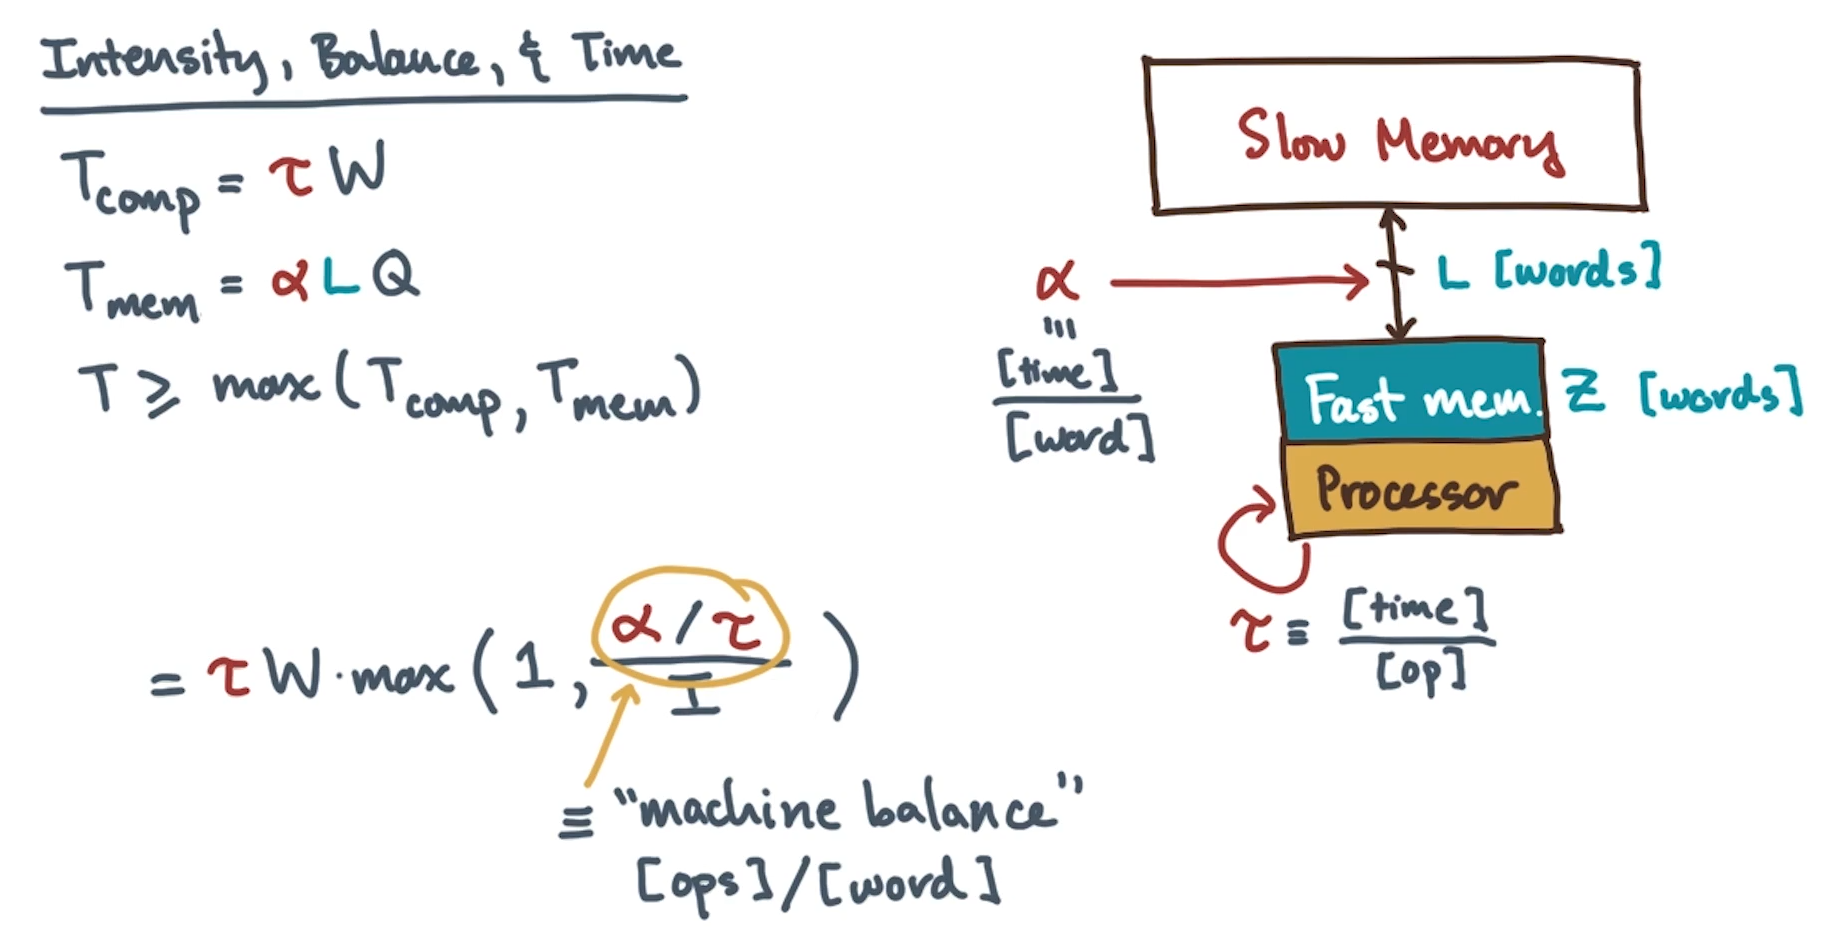 Intensity, Balance, & Time
T_comp = τ W
T_mem = α L Q
T ≥ max(T_comp, T_mem)
= τ W · max(1, (α/τ)/I)
≡ "machine balance"
[ops]/[word]
Slow Memory
L [words]
α
≡
[time]
[word]
Fast mem.
Z [words]
Processor
τ ≡ [time]/[op]